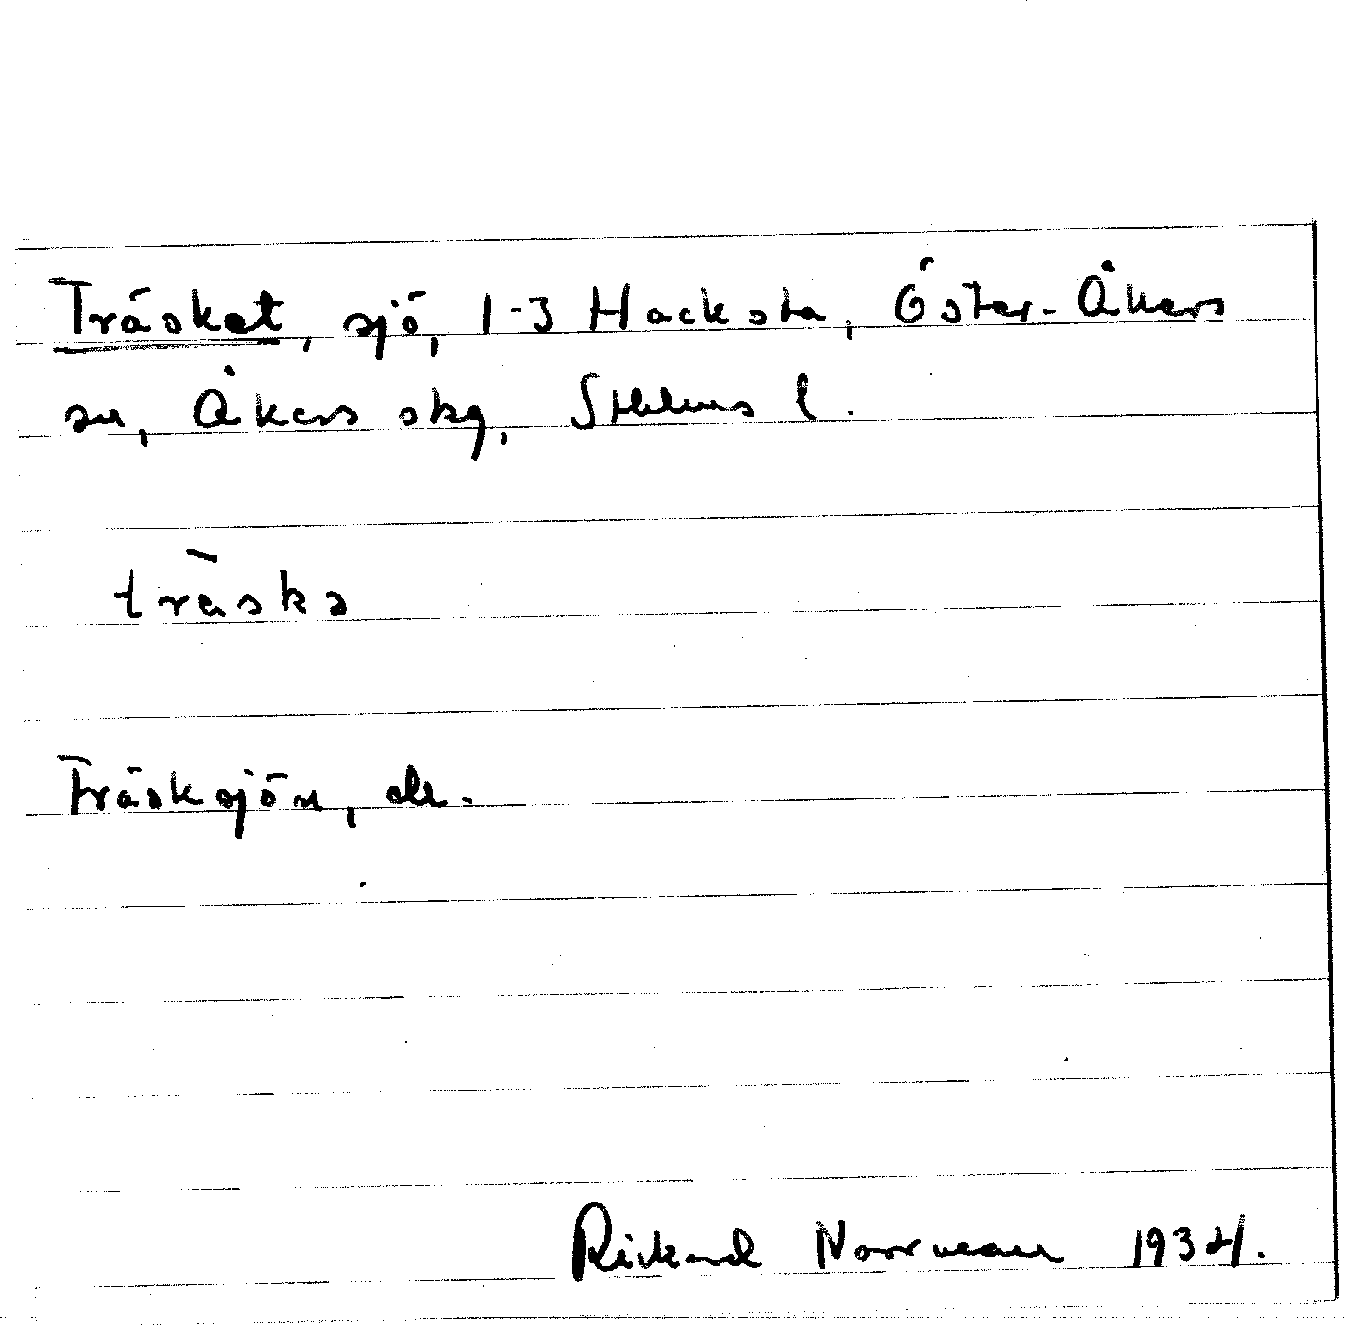 Träsket, sjö, 1-3 Hacksta, Öster-Åkers
sn, Åkers skg, Sthlms l.
träska
Träsksjön, da.
Rickard Norrman 1934.